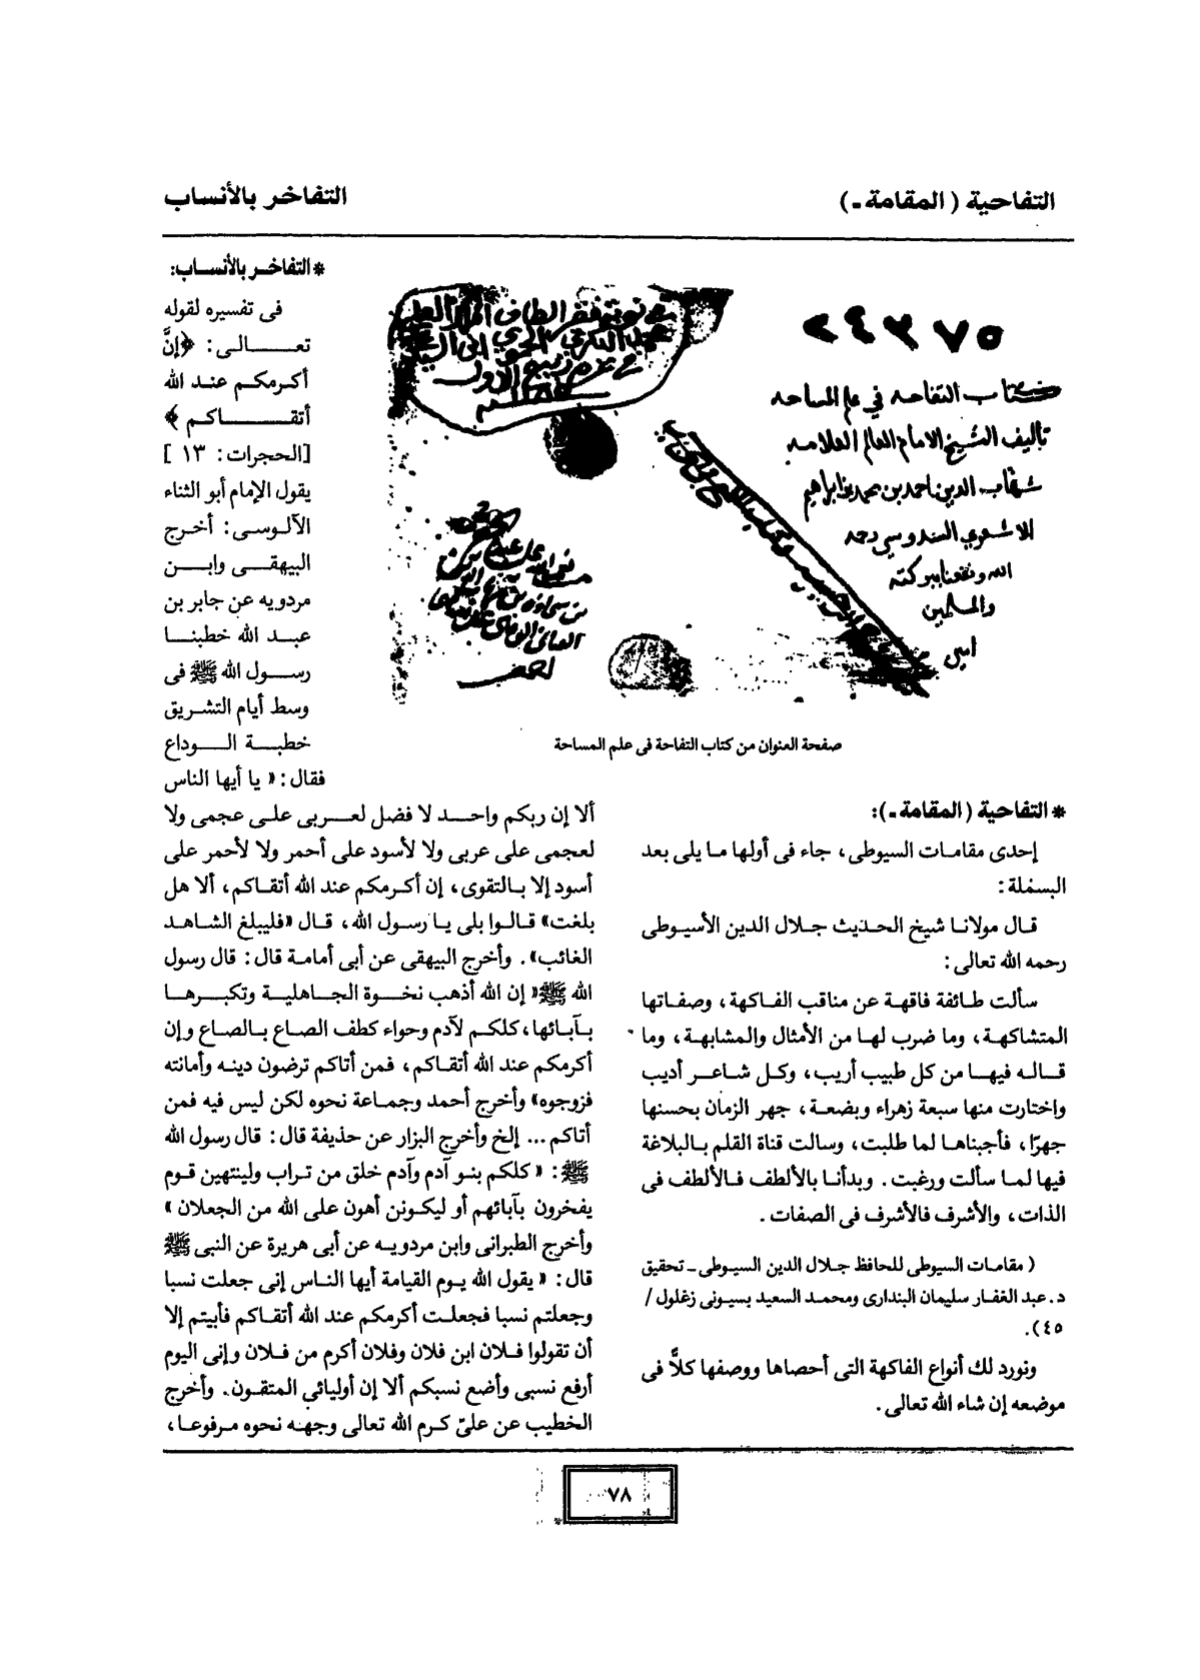 التفاحية ( المقامة ـ)
التفاخر بالأنساب
٥٧٣٤٢
كتاب التفاحه في علم المساحه
تأليف الشيخ الامام العالم العلامه
شهاب الدين احمد بن محمد بن ابراهيم
الاشعري السندوسي رحمه
الله ونفعنا ببركته
والمسلمين
امين
صفحة العنوان من كتاب التفاحة فى علم المساحة
* التفاحية (المقامة ـ):
إحدى مقامات السيوطى، جاء فى أولها ما يلى بعد
البسملة:
قال مولانا شيخ الحديث جلال الدين الأسيوطى
رحمه الله تعالى:
سألت طائفة فاقهة عن مناقب الفاكهة، وصفاتها
المتشاكهة، وما ضرب لها من الأمثال والمشابهة، وما
قاله فيها من كل طبيب أريب، وكل شاعر أديب
واختارت منها سبعة زهراء وبضعة، جهر الزمان بحسنها
جهرًا، فأجبناها لما طلبت، وسالت قناة القلم بالبلاغة
فيها لما سألت ورغبت. وبدأنا بالألطف فالألطف فى
الذات، والأشرف فالأشرف فى الصفات.
( مقامات السيوطى للحافظ جلال الدين السيوطى ـ تحقيق
د. عبد الغفار سليمان البندارى ومحمد السعيد بسيونى زغلول /
٤٥).
ونورد لك أنواع الفاكهة التى أحصاها ووصفها كلاًّ فى
موضعه إن شاء الله تعالى.
* التفاخر بالأنساب:
فى تفسيره لقوله
تعالى: ﴿إنَّ
أكرمكم عند الله
أتقاكم ﴾
[الحجرات: ١٣ ]
يقول الإمام أبو الثناء
الآلوسى: أخرج
البيهقى وابن
مردويه عن جابر بن
عبد الله خطبنا
رسول الله ﷺ فى
وسط أيام التشريق
خطبة الوداع
فقال: « يا أيها الناس
ألا إن ربكم واحد لا فضل لعربى على عجمى ولا
لعجمى على عربى ولا لأسود على أحمر ولا لأحمر على
أسود إلا بالتقوى، إن أكرمكم عند الله أتقاكم، ألا هل
بلغت» قالوا بلى يا رسول الله، قال «فليبلغ الشاهد
الغائب». وأخرج البيهقى عن أبى أمامة قال: قال رسول
الله ﷺ« إن الله أذهب نخوة الجاهلية وتكبرها
بآبائها، كلكم لآدم وحواء كطف الصاع بالصاع وإن
أكرمكم عند الله أتقاكم، فمن أتاكم ترضون دينه وأمانته
فزوجوه» وأخرج أحمد وجماعة نحوه لكن ليس فيه فمن
أتاكم ... إلخ وأخرج البزار عن حذيفة قال: قال رسول الله
ﷺ: « كلكم بنو آدم وآدم خلق من تراب ولينتهين قوم
يفخرون بآبائهم أو ليكونن أهون على الله من الجعلان »
وأخرج الطبرانى وابن مردويه عن أبى هريرة عن النبى ﷺ
قال: « يقول الله يوم القيامة أيها الناس إنى جعلت نسبا
وجعلتم نسبا فجعلت أكرمكم عند الله أتقاكم فأبيتم إلا
أن تقولوا فلان ابن فلان وفلان أكرم من فلان وإنى اليوم
أرفع نسبى وأضع نسبكم ألا إن أوليائي المتقون. وأخرج
الخطيب عن علىّ كرم الله تعالى وجهه نحوه مرفوعا،
٧٨